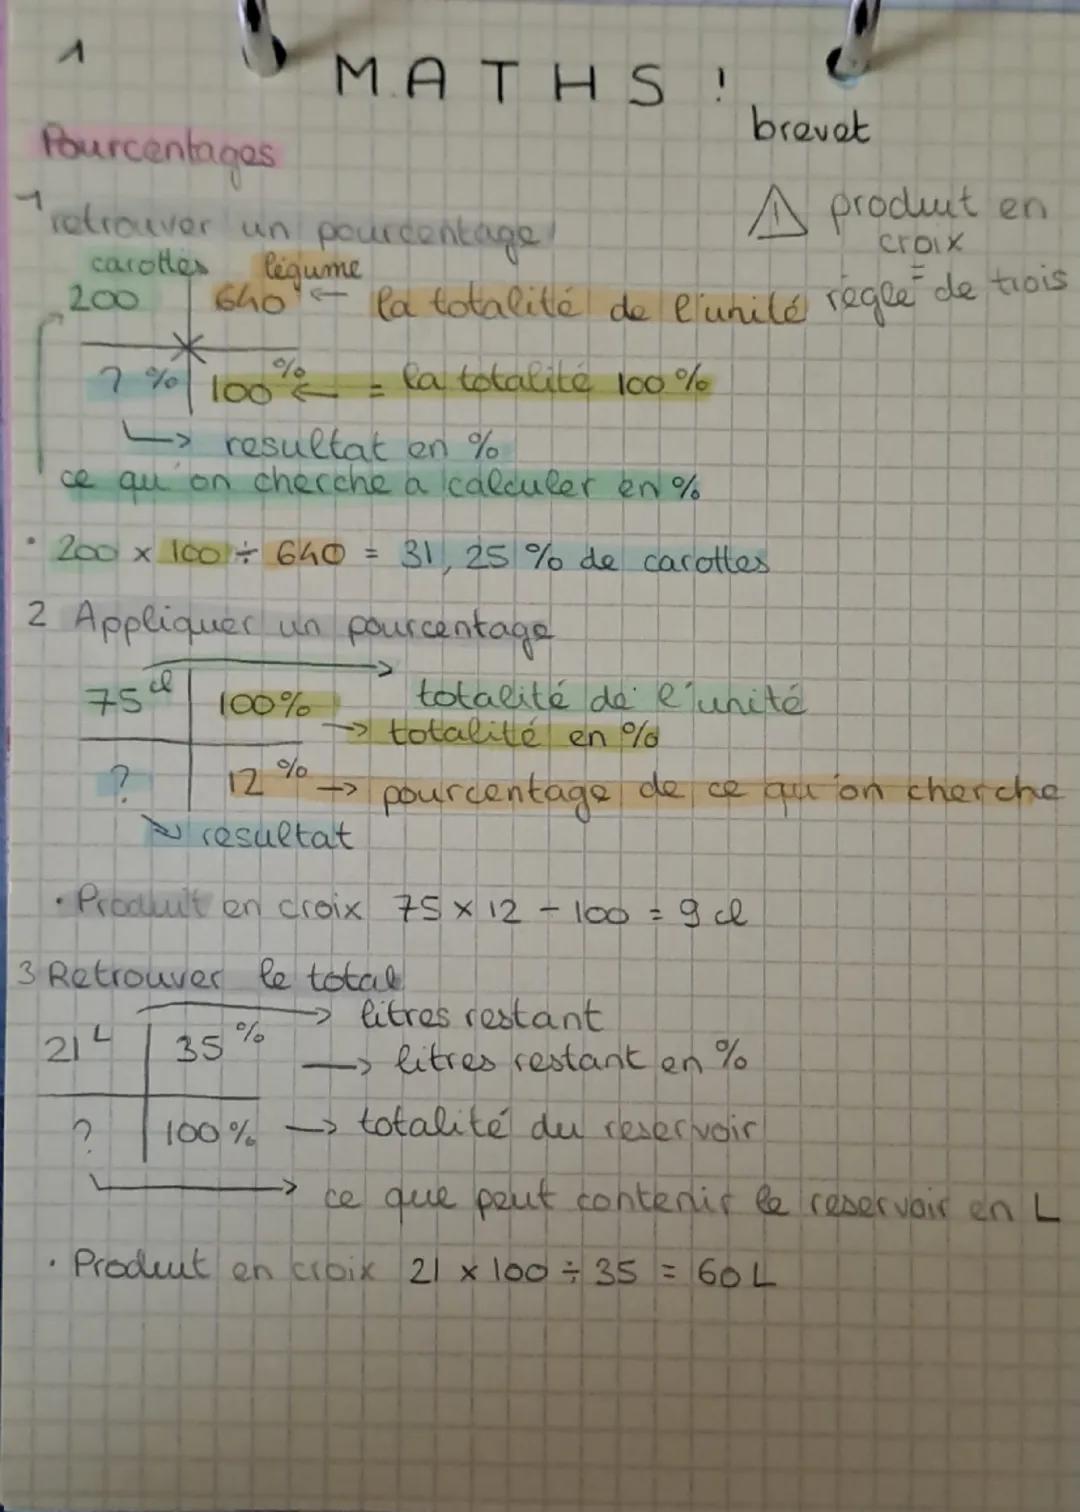 1
MATHS !
brevet
Pourcentages
⚠ produit en
croix
=
règle de trois
1 retrouver un pourcentage
carottes légume
200 640 ← la totalité de l'unité
? % 100 % ← = la totalité 100 %
↳ resultat en %
ce qu'on cherche a calculer en %
• 200 x 100 ÷ 640 = 31,25 % de carottes
2 Appliquer un pourcentage
75 cl 100% → totalité de l'unité
→ totalité en %
? 12 % → pourcentage de ce qu'on cherche
↘ resultat
• Produit en croix 75 x 12 ÷ 100 = 9 cl
3 Retrouver le total
→ litres restant
21 L 35 % → litres restant en %
? 100 % → totalité du reservoir
→ ce que peut contenir le reservoir en L
• Produit en croix 21 x 100 ÷ 35 = 60 L